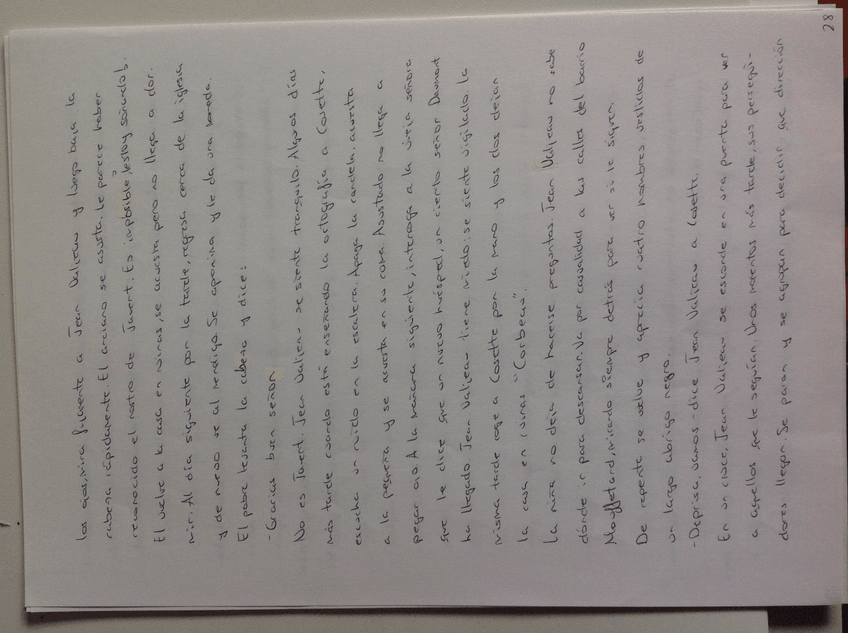 28
los ojos, mira fijamente a Jean Valjean y luego baja la
cabeza rápidamente. El anciano se asusta. Le parece haber
reconocido el rostro de Javert. Es imposible, ¡estoy soñando!.
El vuelve a la casa en ruinas, se acuesta pero no llega a dor-
mir. Al día siguiente por la tarde, regresa cerca de la iglesia
y de nuevo ve al mendigo. Se aproxima y le da una moneda.
El pobre levanta la cabeza y dice:
- Gracias buen señor.
No es Javert. Jean Valjean se siente tranquilo. Algunos días
más tarde cuando está enseñando la ortografía a Cosette,
escucha un ruido en la escalera. Apaga la candela, acuesta
a la pequeña y se acuesta en su cama. Asustado no llega a
pegar ojo. A la mañana siguiente, interroga a la vieja señora
que le dice que un nuevo huésped, un cierto señor Daumont
ha llegado. Jean Valjean tiene miedo: se siente vigilado. La
misma tarde coge a Cosette por la mano y los dos dejan
la casa en ruinas "Corbeau".
La niña no deja de hacerse preguntas. Jean Valjean no sabe
dónde ir para descansar. Va por casualidad a las calles del barrio
Mouffetard, mirando siempre detrás para ver si le siguen.
De repente se vuelve y aprecia cuatro hombres vestidos de
un largo abrigo negro.
- Deprisa, vamos - dice Jean Valjean a Cosette.
En un cruce, Jean Valjean se esconde en una puerta para ver
a aquellos que le seguían. Unos momentos más tarde, sus persegui-
dores llegan. Se paran y se agrupan para decidir que dirección